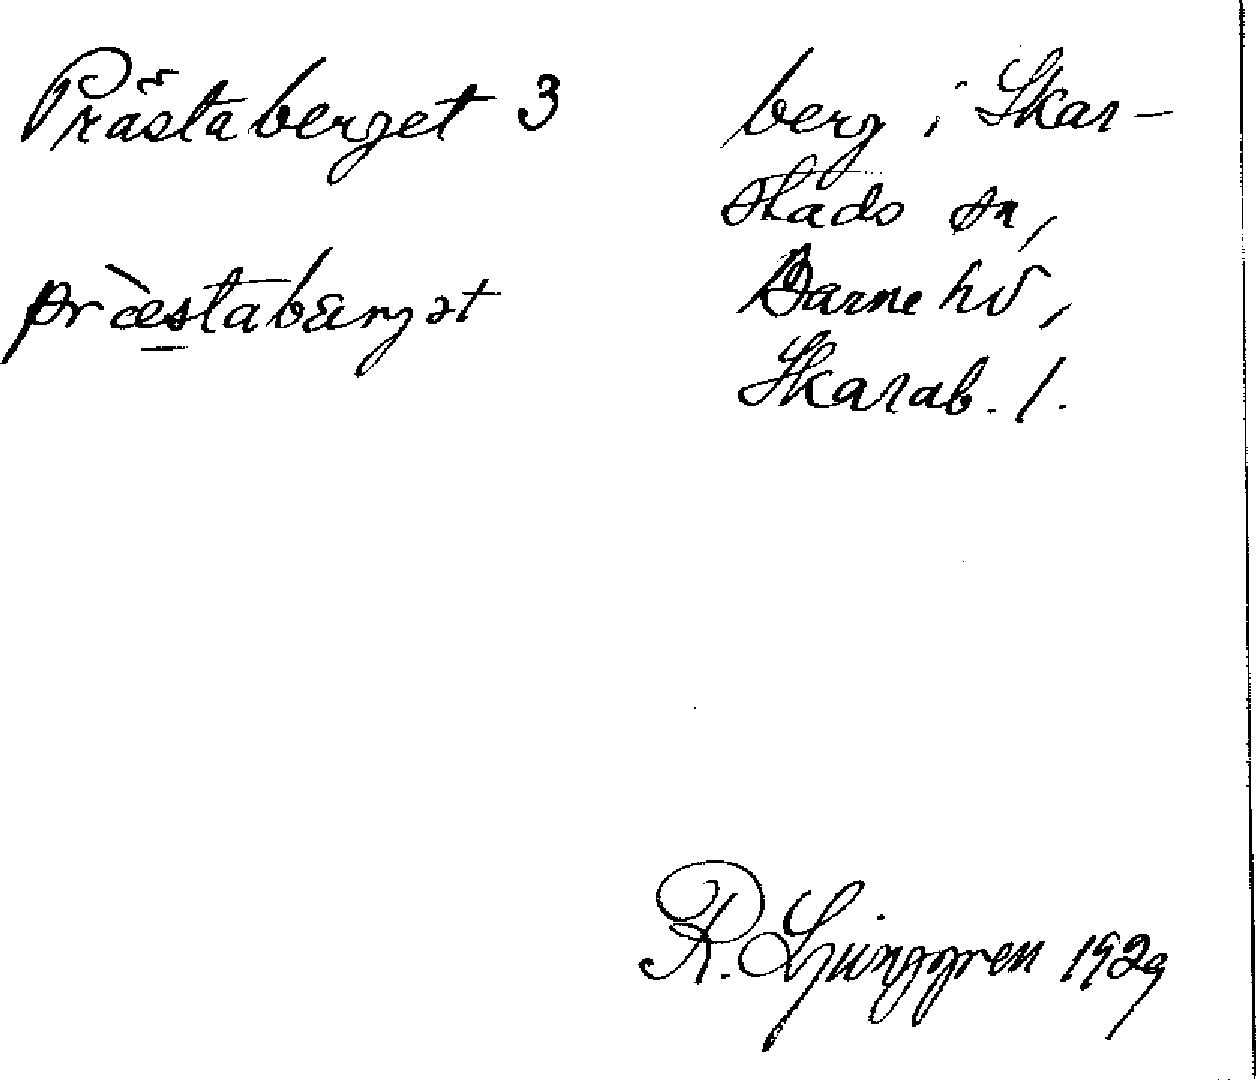 Prästaberget 3
præ̀stabærjət
berg i Skar-
stads sn,
Barne hd,
Skarab. l.
R. Ljunggren 1929